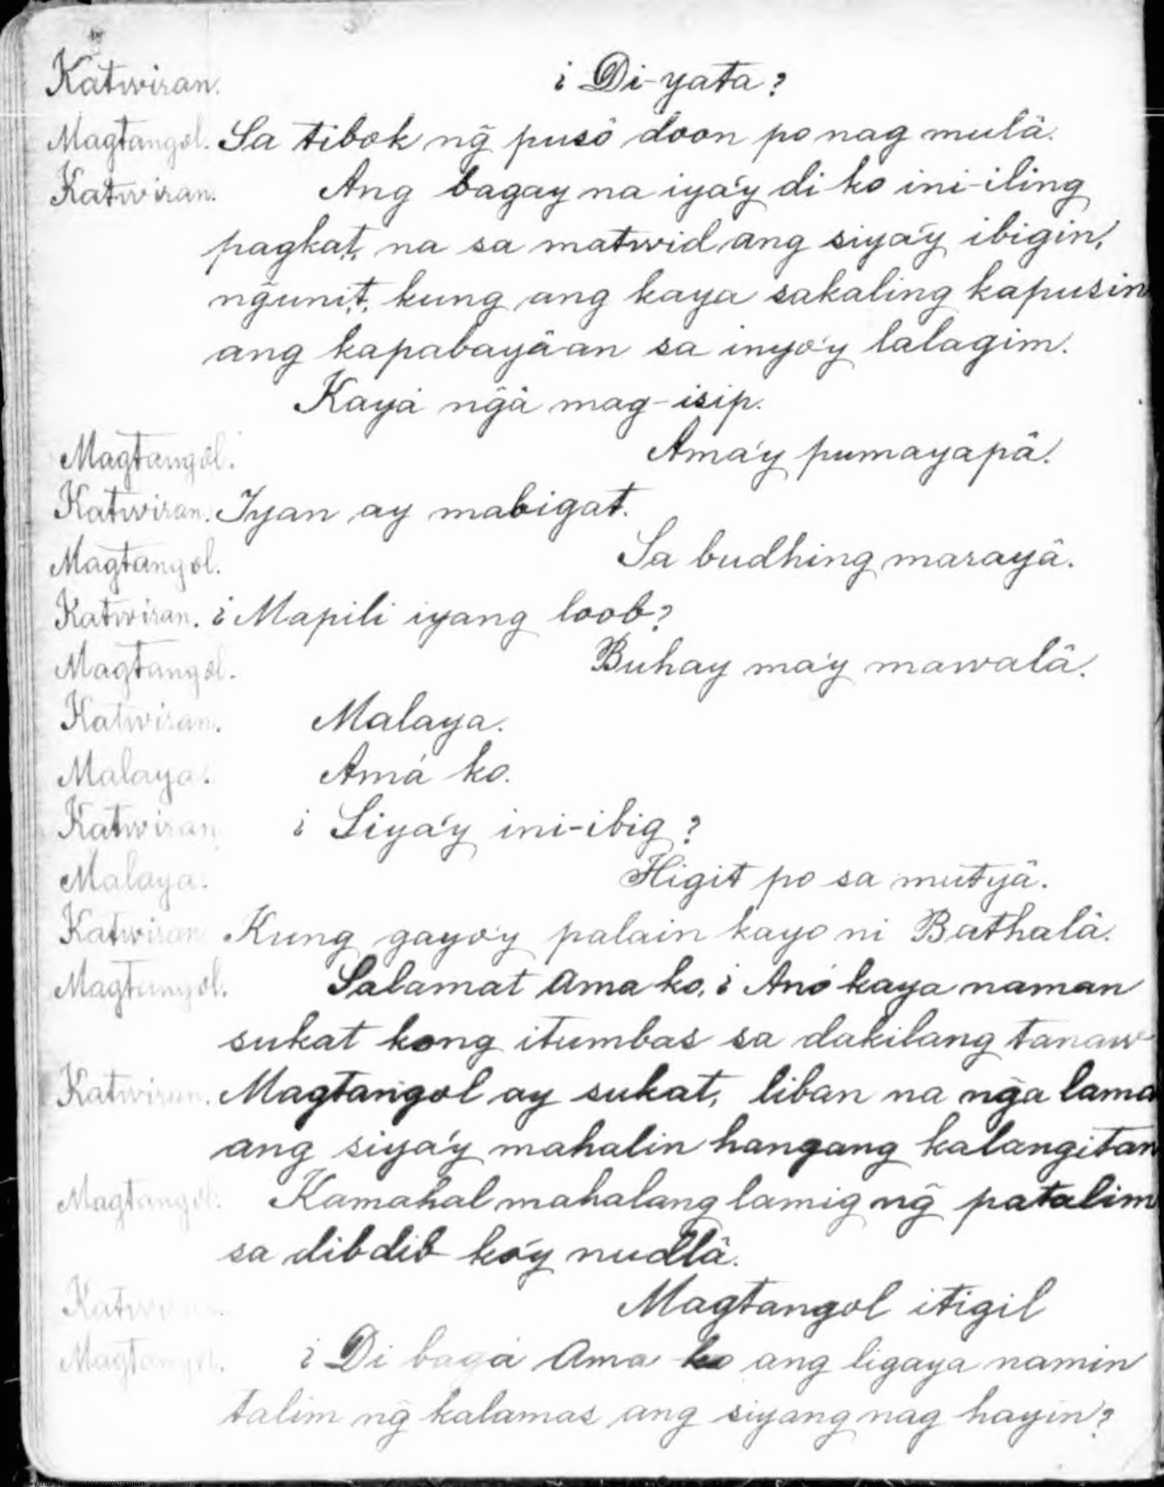 Katwiran. ¿Di-yata?
Magtangol. Sa tibok ng̃ pusò doon po nag mulâ.
Katwiran. Ang bagay na iya'y di ko ini-iling
pagkat, na sa matwid ang siya'y ibigin,
ng̃unit, kung ang kaya sakaling kapusin
ang kapabayâan sa inyo'y lalagim.
Kayá ng̃â mag-isip.
Magtangol. Ama'y pumayapâ.
Katwiran. Iyan ay mabigat.
Magtangol. Sa budhing marayâ.
Katwiran. ¿Mapili iyang loob?
Magtangol. Buhay ma'y mawalâ.
Katwiran. Malaya.
Malaya. Amá ko.
Katwiran ¿Siya'y ini-ibig?
Malaya. Higit po sa mutyâ.
Katwiran Kung gayo'y palain kayo ni Bathalâ.
Magtangol. Salamat Ama ko. ¿Anó kaya naman
sukat kong itumbas sa dakilang tanaw
Katwiran. Magtang̃ol ay sukat, liban na ng̃a lama
ang siya'y mahalin hangang kalangitan
Magtangol. Kamahal mahalang lamig ng̃ patalim
sa dibdib ko'y nudlâ.
Katwiran Magtangol itigil
Magtangol. ¿Di bagá Ama ko ang ligaya namin
talim ng̃ kalamas ang siyang nag hayin?